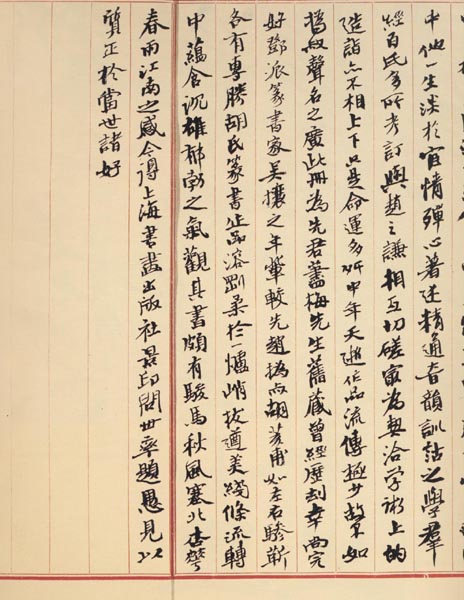 中他一生淡於宦情殫心著述精通音韻訓詁之學羣
經百氏多所考訂與趙之謙相互切磋最為契洽學術上的
造詣亦不相上下只是命運多舛中年夭逝作品流傳極少故不如
撝叔聲名之廣此冊為先君藎梅先生舊藏曾經歷刦幸尚完
好鄧派篆書家吳攘之年輩較先趙撝尗胡荄甫如左右驂靳
各有專勝胡氏篆書溶剛柔於一爐峭拔遒美綫條流轉
中蘊含沉雄郁勃之氣觀其書頗有駿馬秋風塞北杏花
春雨江南之感今得上海書畫出版社景印問世率題愚見以
質正於當世諸好